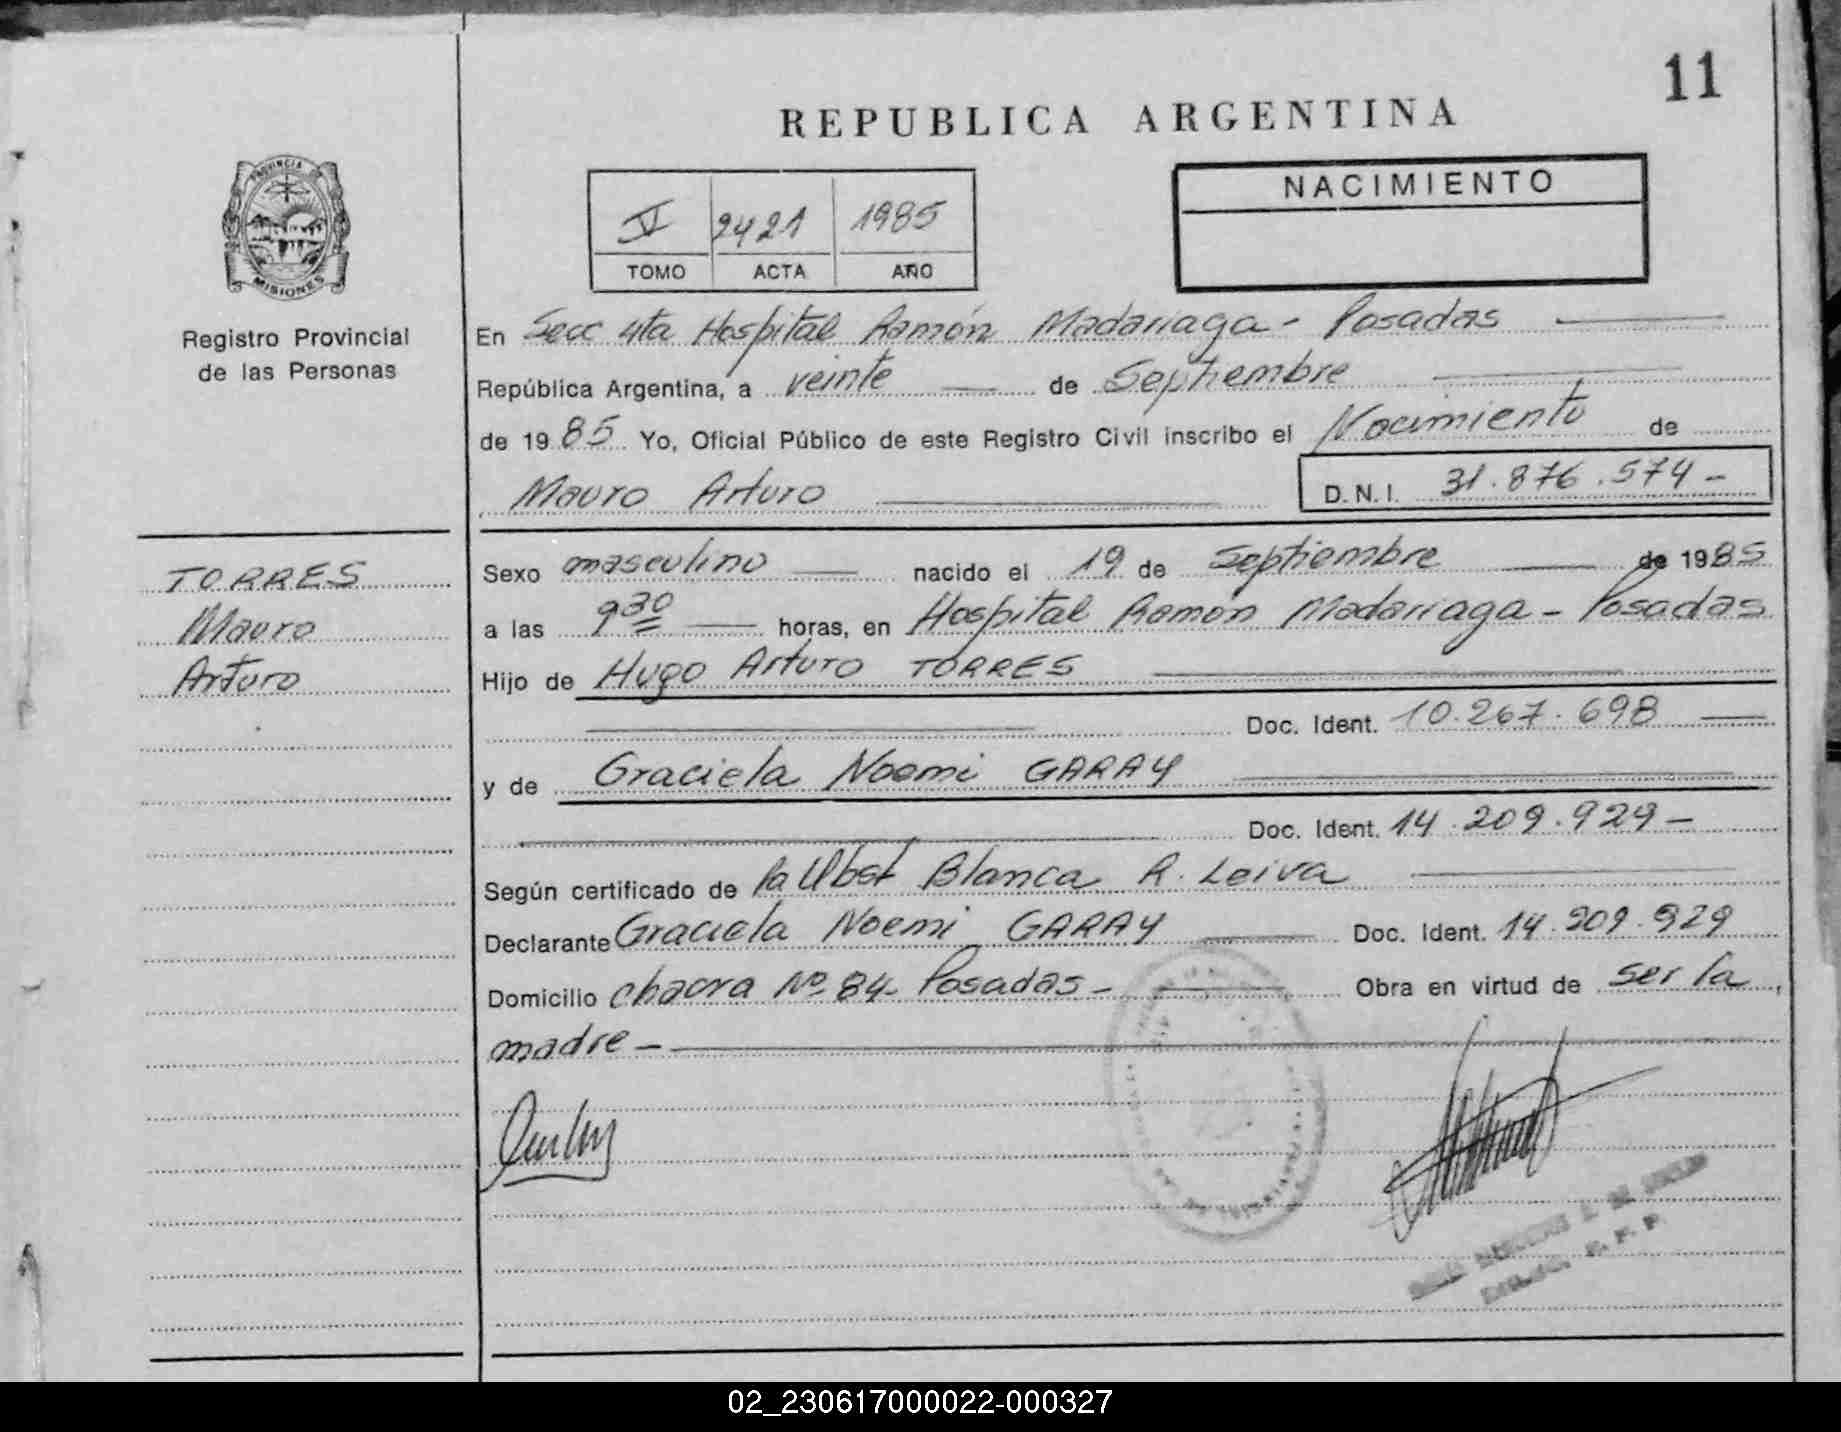 11
REPUBLICA ARGENTINA
PROVINCIA DE
MISIONES
Registro Provincial
de las Personas
V 2421 1985
TOMO ACTA AÑO
NACIMIENTO
En Secc 4ta Hospital Ramón Madariaga - Posadas
República Argentina, a veinte de Septiembre
de 1985 Yo, Oficial Público de este Registro Civil inscribo el Nacimiento de
Mauro Arturo D.N.I. 31.876.574-
TORRES
Mauro
Arturo
Sexo masculino nacido el 19 de Septiembre de 1985
a las 9 30 horas, en Hospital Ramón Madariaga - Posadas
Hijo de Hugo Arturo TORRES
Doc. Ident. 10.267.698
y de Graciela Noemi GARAY
Doc. Ident. 14.209.929-
Según certificado de la Obst Blanca R. Leiva
Declarante Graciela Noemi GARAY Doc. Ident. 14.209.929
Domicilio chacra Nº 84 Posadas - Obra en virtud de ser la
madre -
02_230617000022-000327